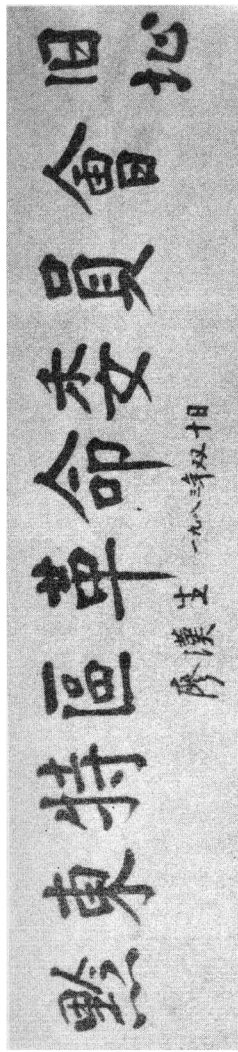 黔東特區革命委員會旧址
廖漢生 一九八三年双十日